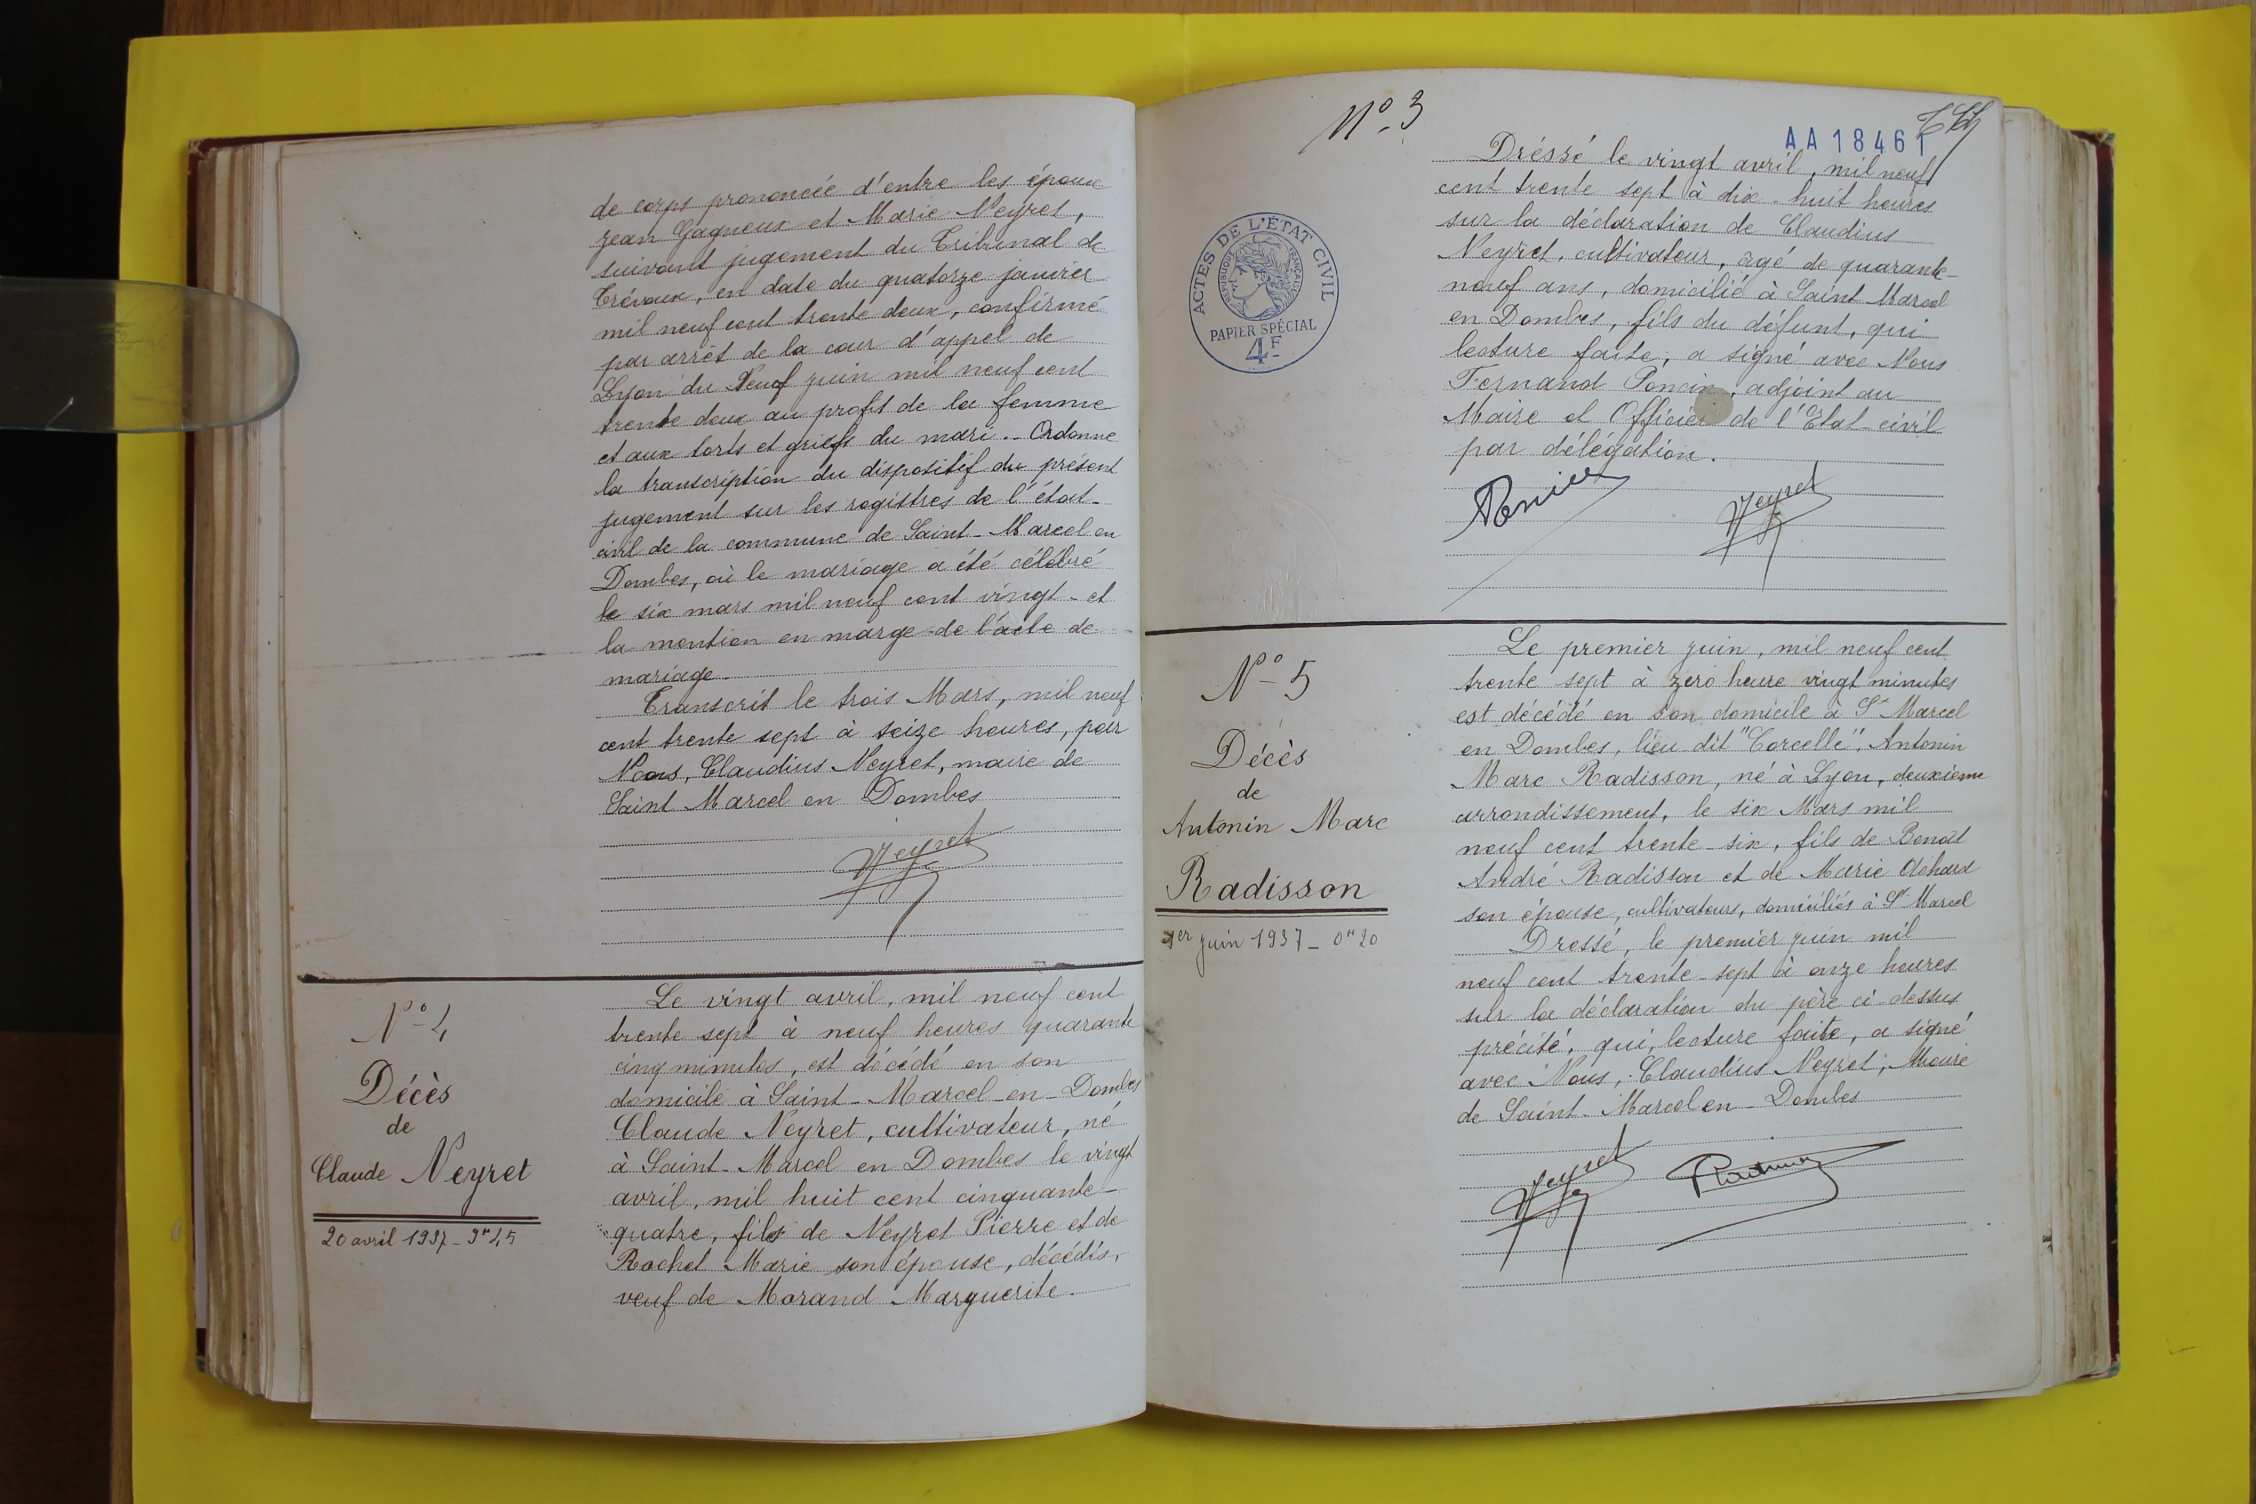 de corps prononcée d'entre les époux
Jean Gagneux et Marie Neyret,
suivant jugement du Tribunal de
Trévoux, en date du quatorze janvier
mil neuf cent trente deux, confirmé
par arrêt de la cour d'appel de
Lyon du Neuf juin mil neuf cent
trente deux au profit de la femme
et aux torts et griefs du mari._ Ordonne
la transcription du dispositif du présent
jugement sur les registres de l'état-
civil de la commune de Saint-Marcel en
Dombes, où le mariage a été célébré
le six mars mil neuf cent vingt - et
la mention en marge de l'acte de
mariage.
Transcrit le trois Mars, mil neuf
cent trente sept à seize heures, par
Nous, Claudius Neyret, maire de
Saint Marcel en Dombes
Neyret
N° 4
Décès
de
Claude Neyret
20 avril 1937 - 9h45
Le vingt avril, mil neuf cent
trente sept à neuf heures quarante
cinq minutes, est décédé en son
domicile à Saint-Marcel-en-Dombes
Claude Neyret, cultivateur, né
à Saint-Marcel en Dombes le vingt
avril, mil huit cent cinquante-
quatre, fils de Neyret Pierre et de
Rochet Marie son épouse, décédés,
veuf de Morand Marguerite.
N° 3
AA18461
ACTES DE L'ÉTAT CIVIL
RÉPUBLIQUE FRANÇAISE
PAPIER SPÉCIAL
4F
Dréssé le vingt avril, mil neuf
cent trente sept à dix-huit heures
sur la déclaration de Claudius
Neyret, cultivateur, agé de quarante-
neuf ans, domicilié à Saint Marcel
en Dombes, fils du défunt, qui
lecture faite, a signé avec Nous
Fernand Poncin, adjoint au
Maire et Officier de l'Etat-civil
par délégation.
Poncin Neyret
N° 5
Décès
de
Antonin Marc
Radisson
1er juin 1937 - 0h20
Le premier juin, mil neuf cent
trente sept à zéro heure vingt minutes
est décédé en son domicile à St Marcel
en Dombes, lieu dit "Corcelle", Antonin
Marc Radisson, né à Lyon, deuxième
arrondissement, le six Mars mil
neuf cent trente-six, fils de Benoît
André Radisson et de Marie Achard
son épouse, cultivateurs, domiciliés à St Marcel
Dressé, le premier juin mil
neuf cent trente-sept à onze heures
sur la déclaration du père ci-dessus
précité, qui, lecture faite, a signé
avec Nous, Claudius Neyret, Maire
de Saint-Marcel en-Dombes
Neyret